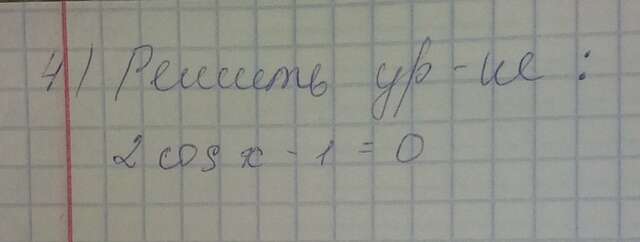 4) Решить ур-ие:
2 cos x - 1 = 0